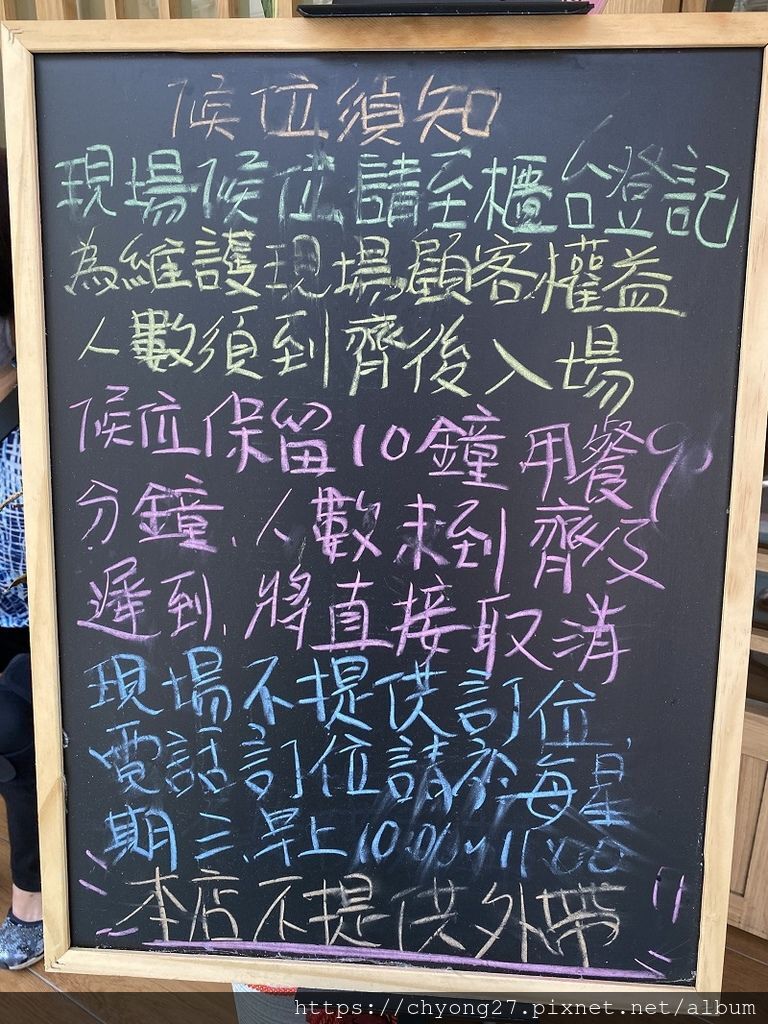 候位須知
現場候位,請至櫃台登記
為維護現場顧客權益
人數須到齊後入場
候位保留10鐘,用餐90
分鐘,人數未到齊及
遲到,將直接取消
現場不提供訂位,
電話訂位請於每星
期三,早上10:00~11:00
本店不提供外帶
https://chyong27.pixnet.net/album